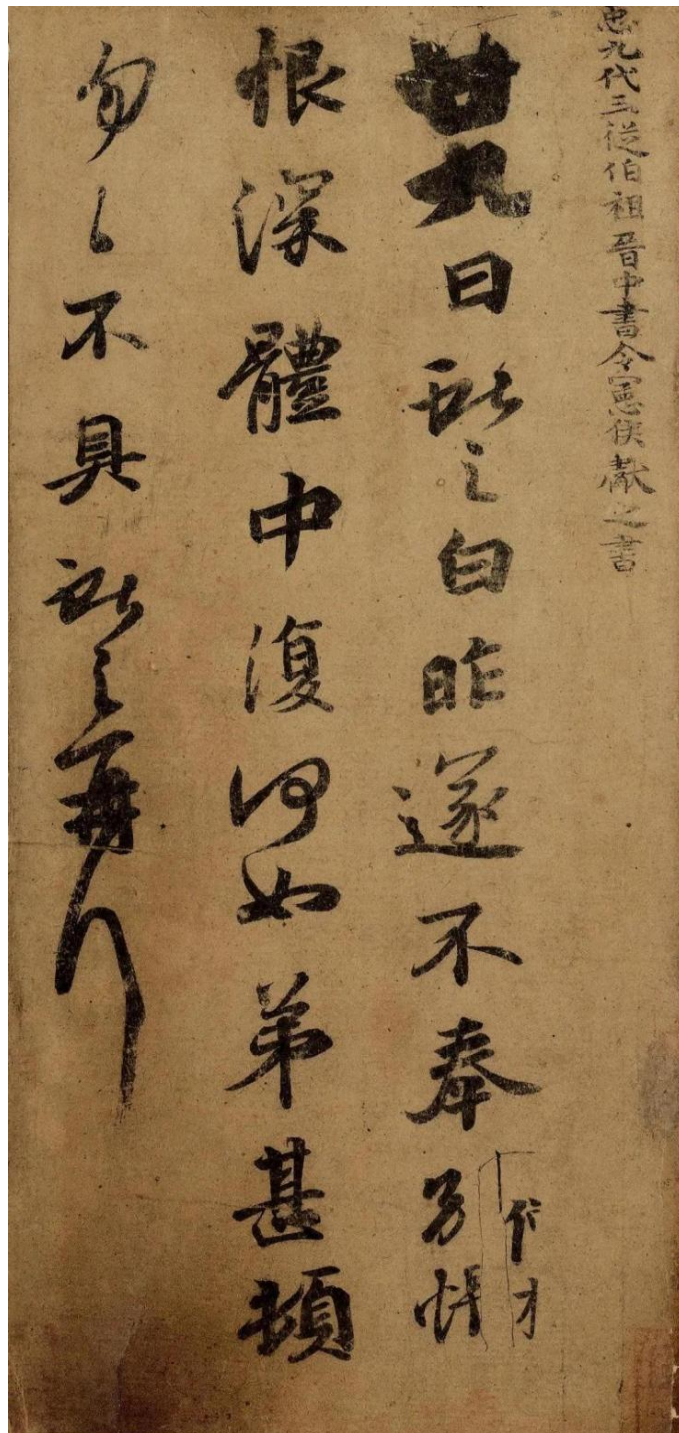 臣九代三從伯祖晉中書令憲侯獻之書
廿九日獻之白昨遂不奉
恨深體中復何如弟甚頓
匆匆不具獻之再拜